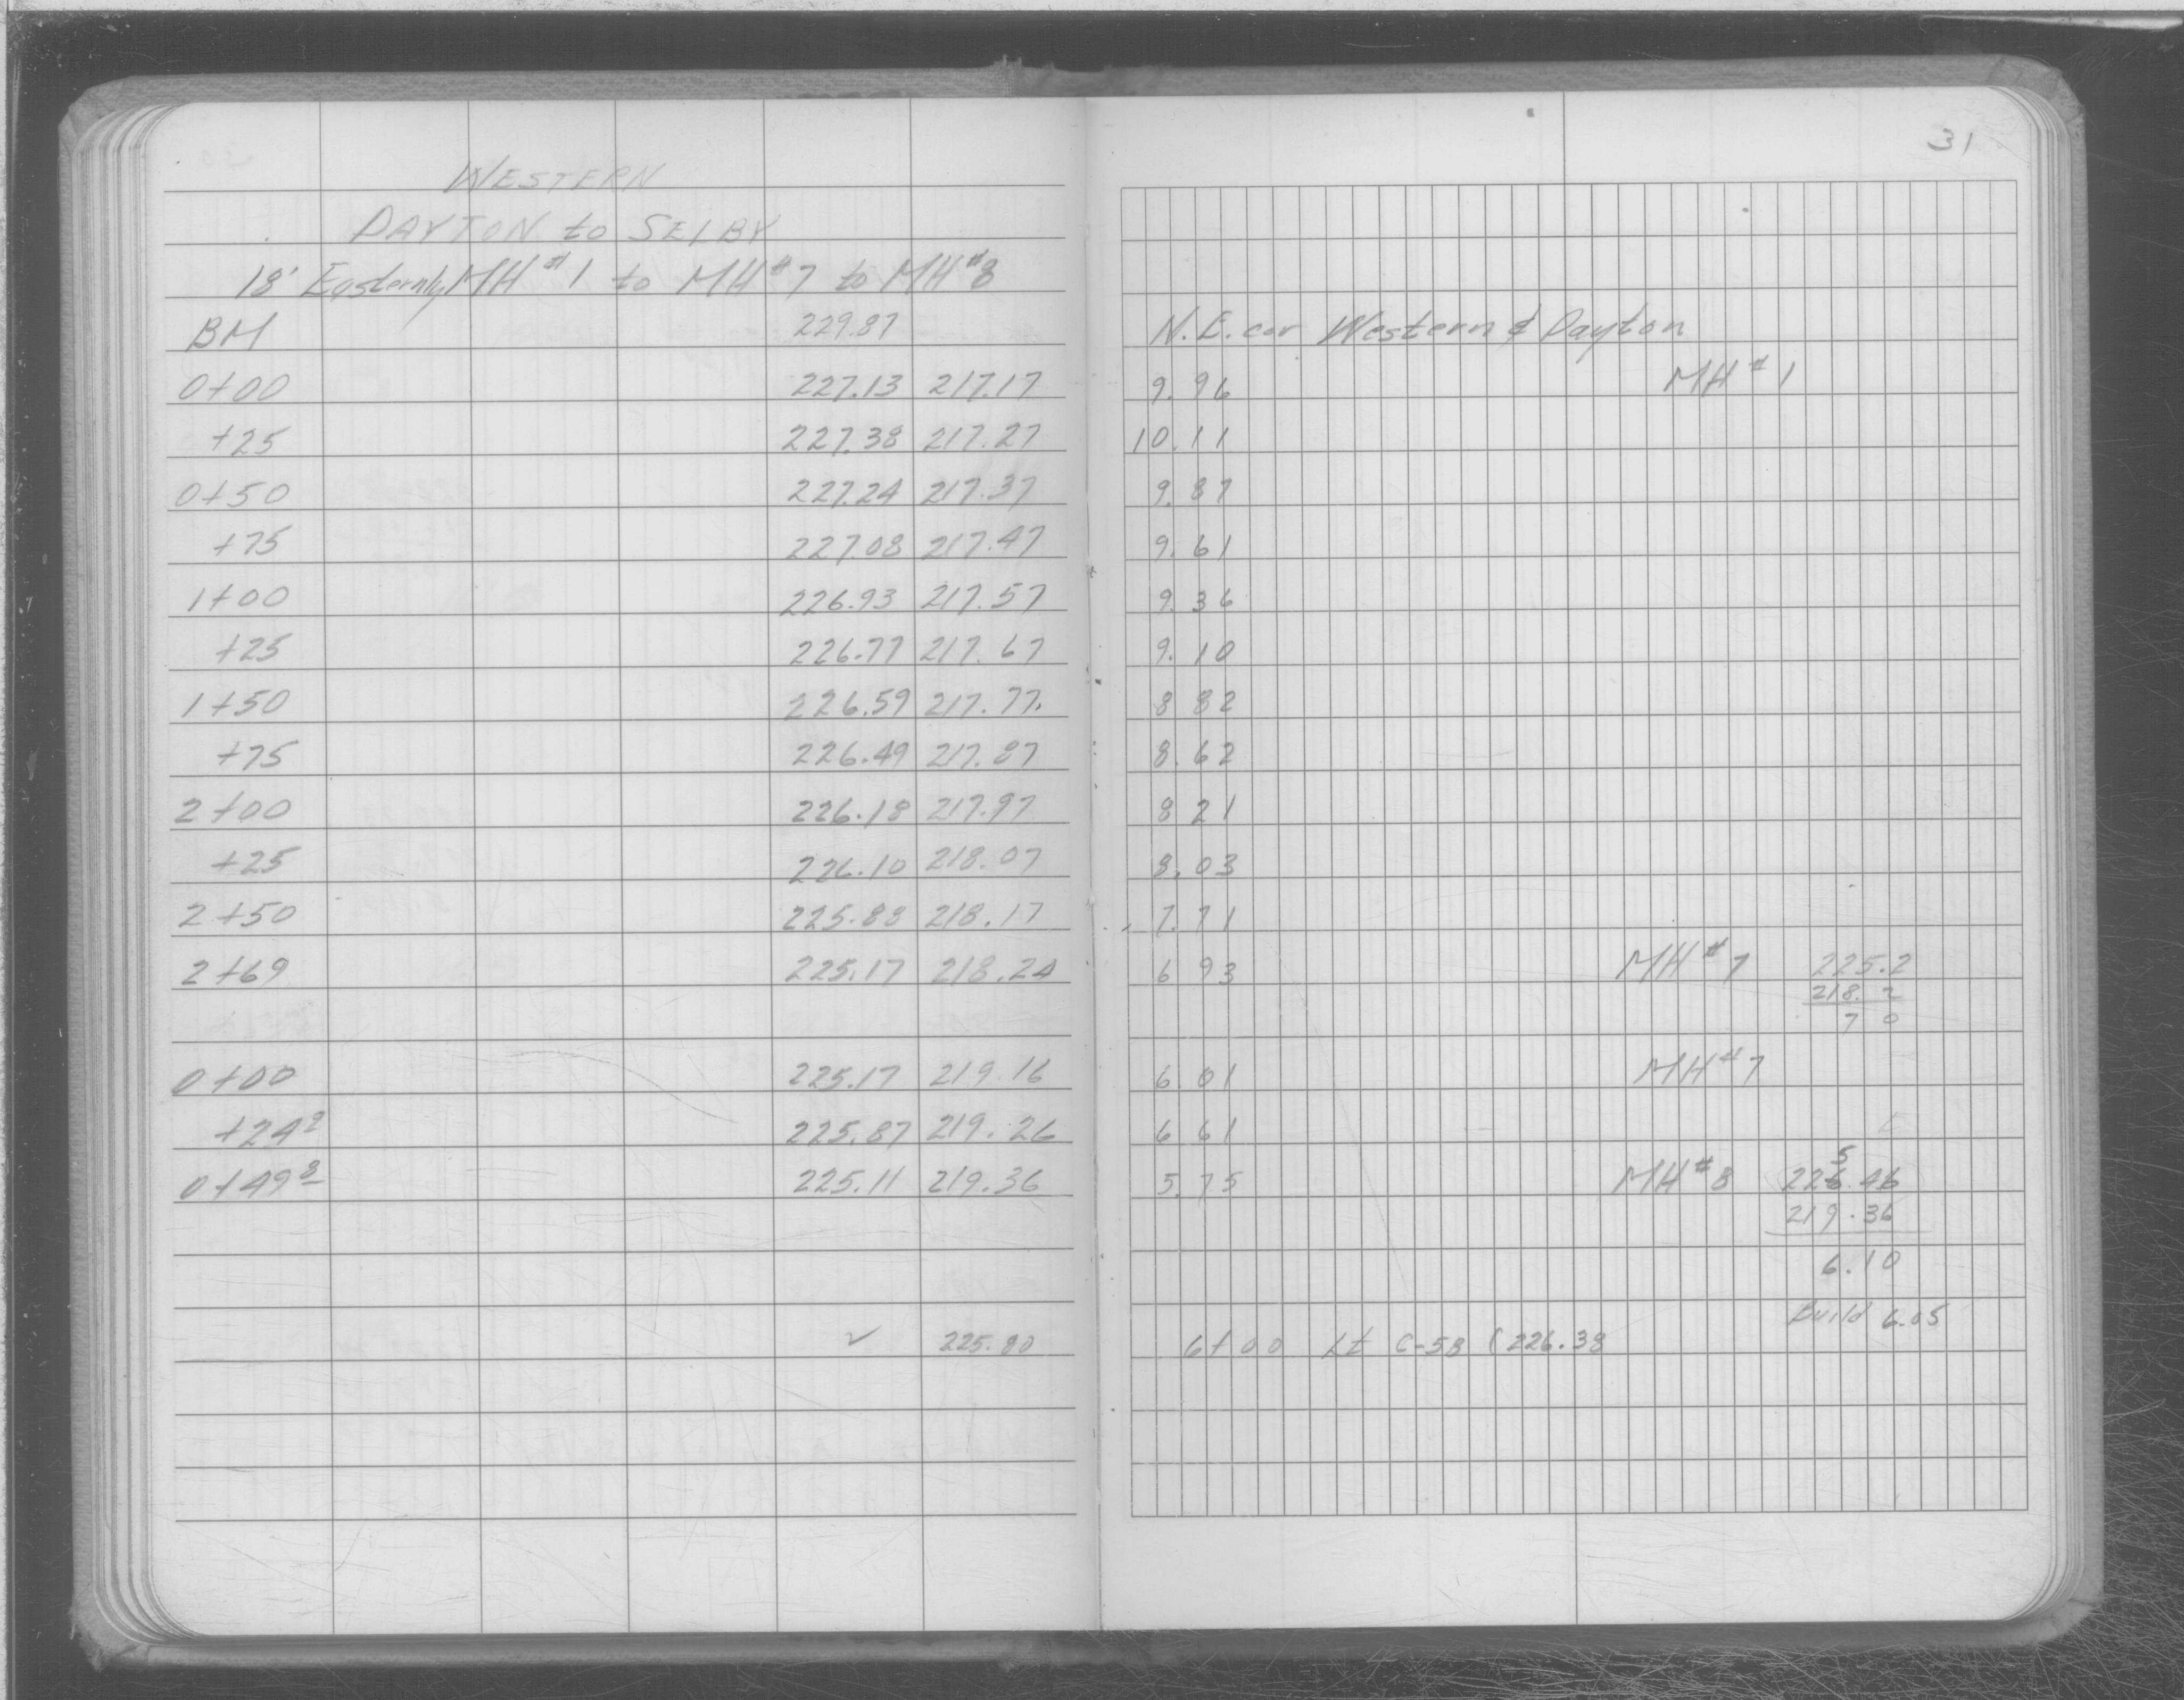 31
WESTERN
DAYTON to SELBY
18' Easternly MH #1 to MH #7 to MH #8
BM 229.87 N.E. cor Western & Dayton
0+00 227.13 217.17 9.96 MH #1
+25 227.38 217.27 10.11
0+50 227.24 217.37 9.87
+75 227.08 217.47 9.61
1+00 226.93 217.57 9.36
+25 226.77 217.67 9.10
1+50 226.59 217.77 8 82
+75 226.49 217.87 8.62
2+00 226.18 217.97 8 21
+25 226.10 218.07 8.03
2+50 225.88 218.17 7.71
2+69 225.17 218.24 6 93 MH #7 225.2
218.2
7 0
0+00 225.17 219.16 6.01 MH #7
+24.9 225.87 219.26 6 61
0+49.8 225.11 219.36 5.75 MH #8 225.46
219.36
6.10
Build 6.05
✓ 225.80 6+00 Lt C-58 (226.38